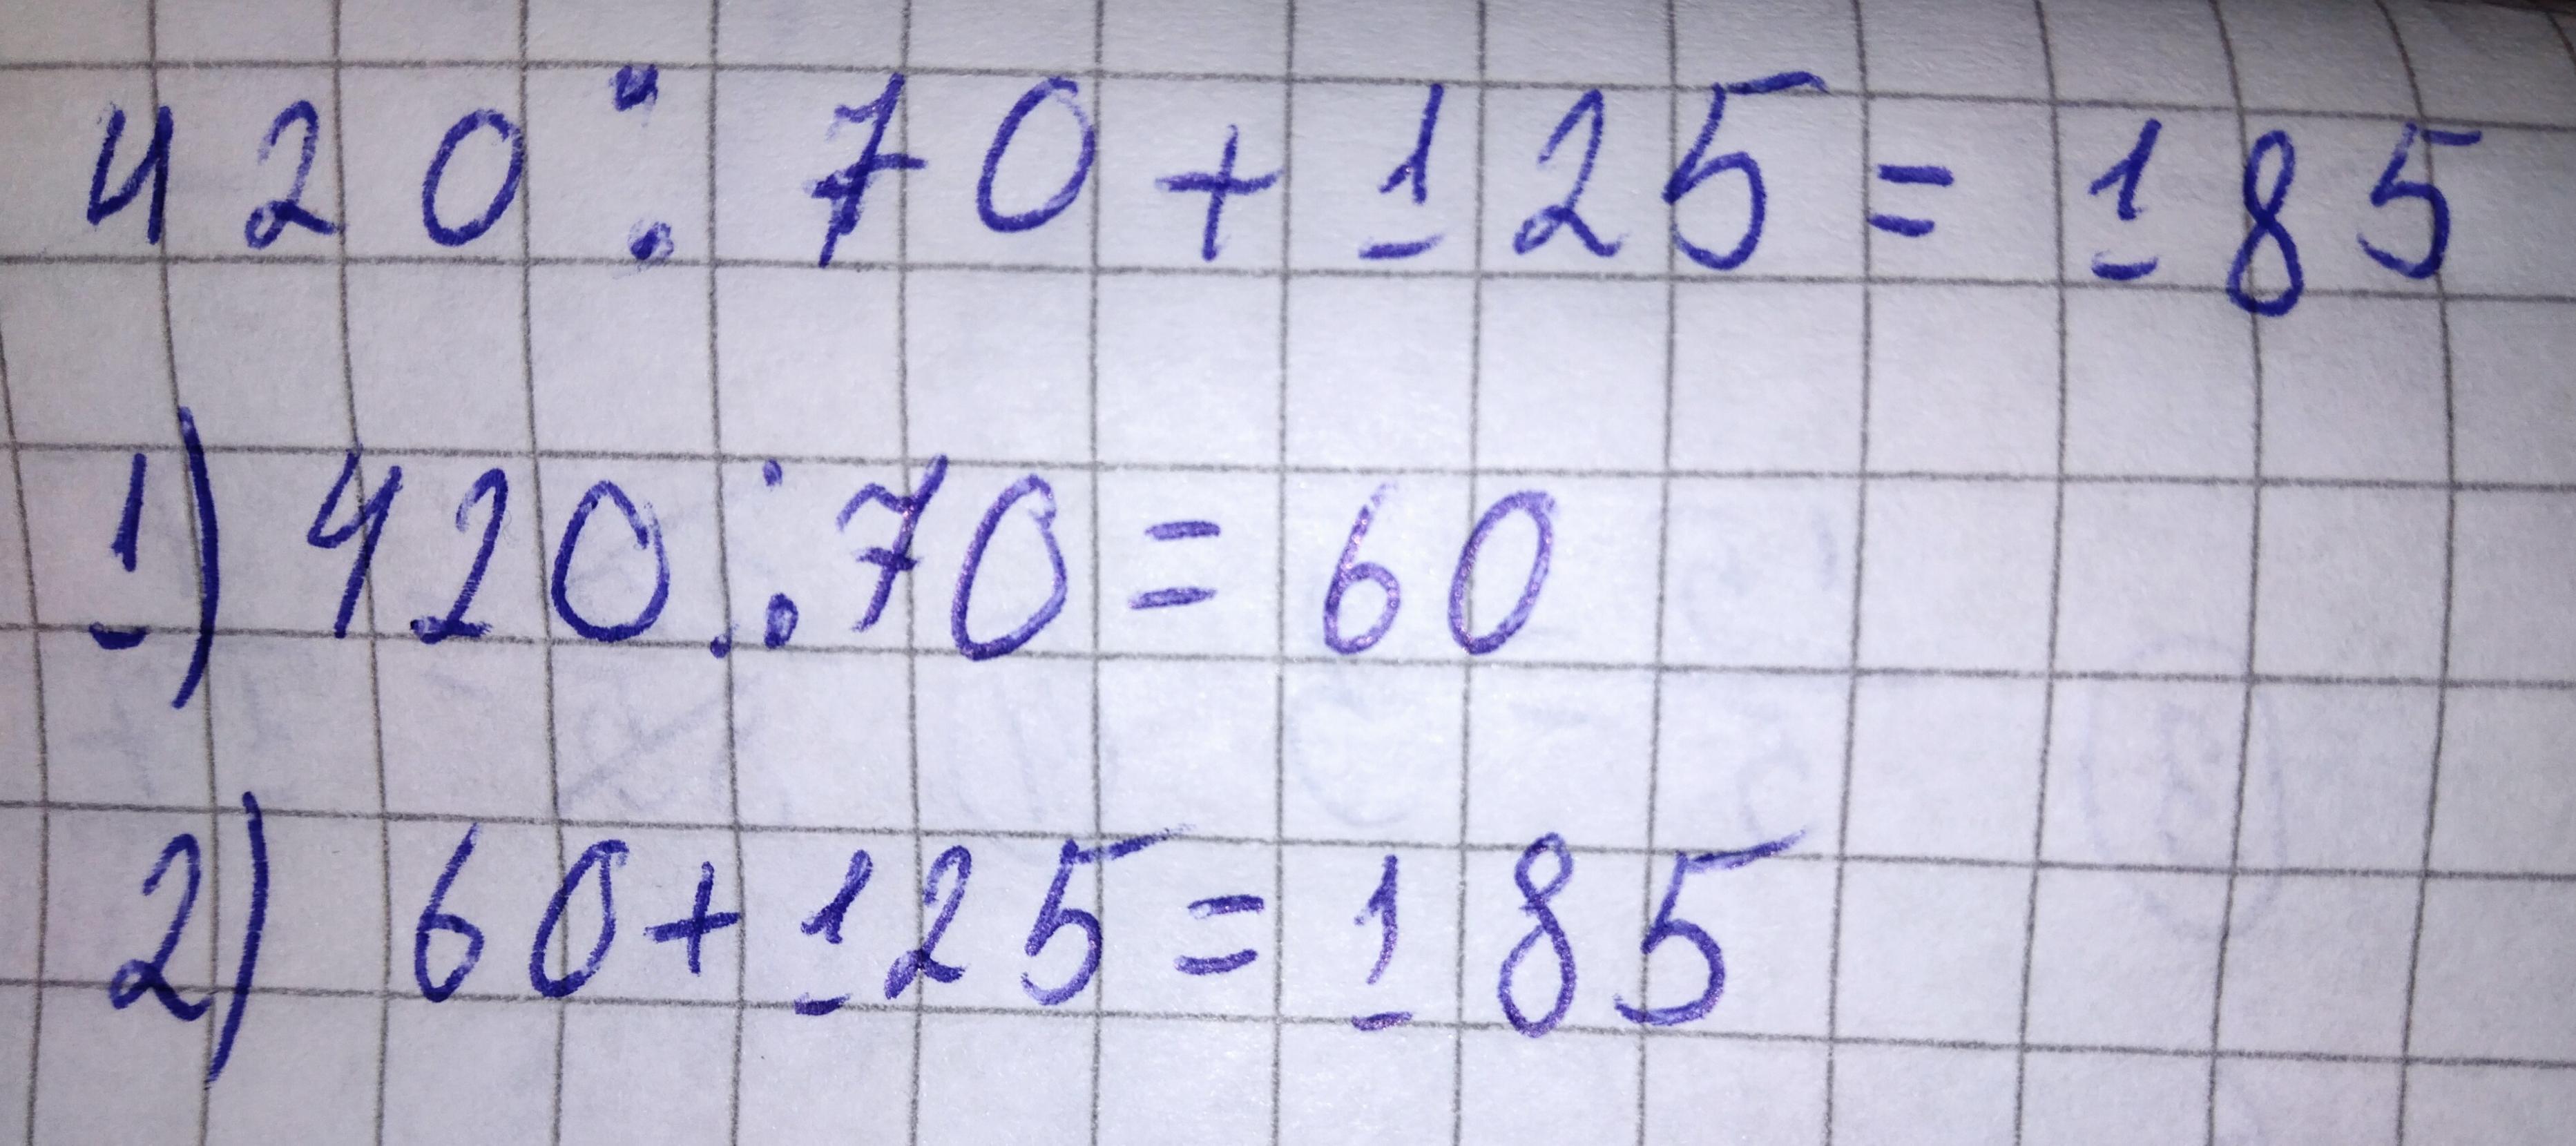 420 : 70 + 125 = 185
1) 420 : 70 = 60
2) 60 + 125 = 185